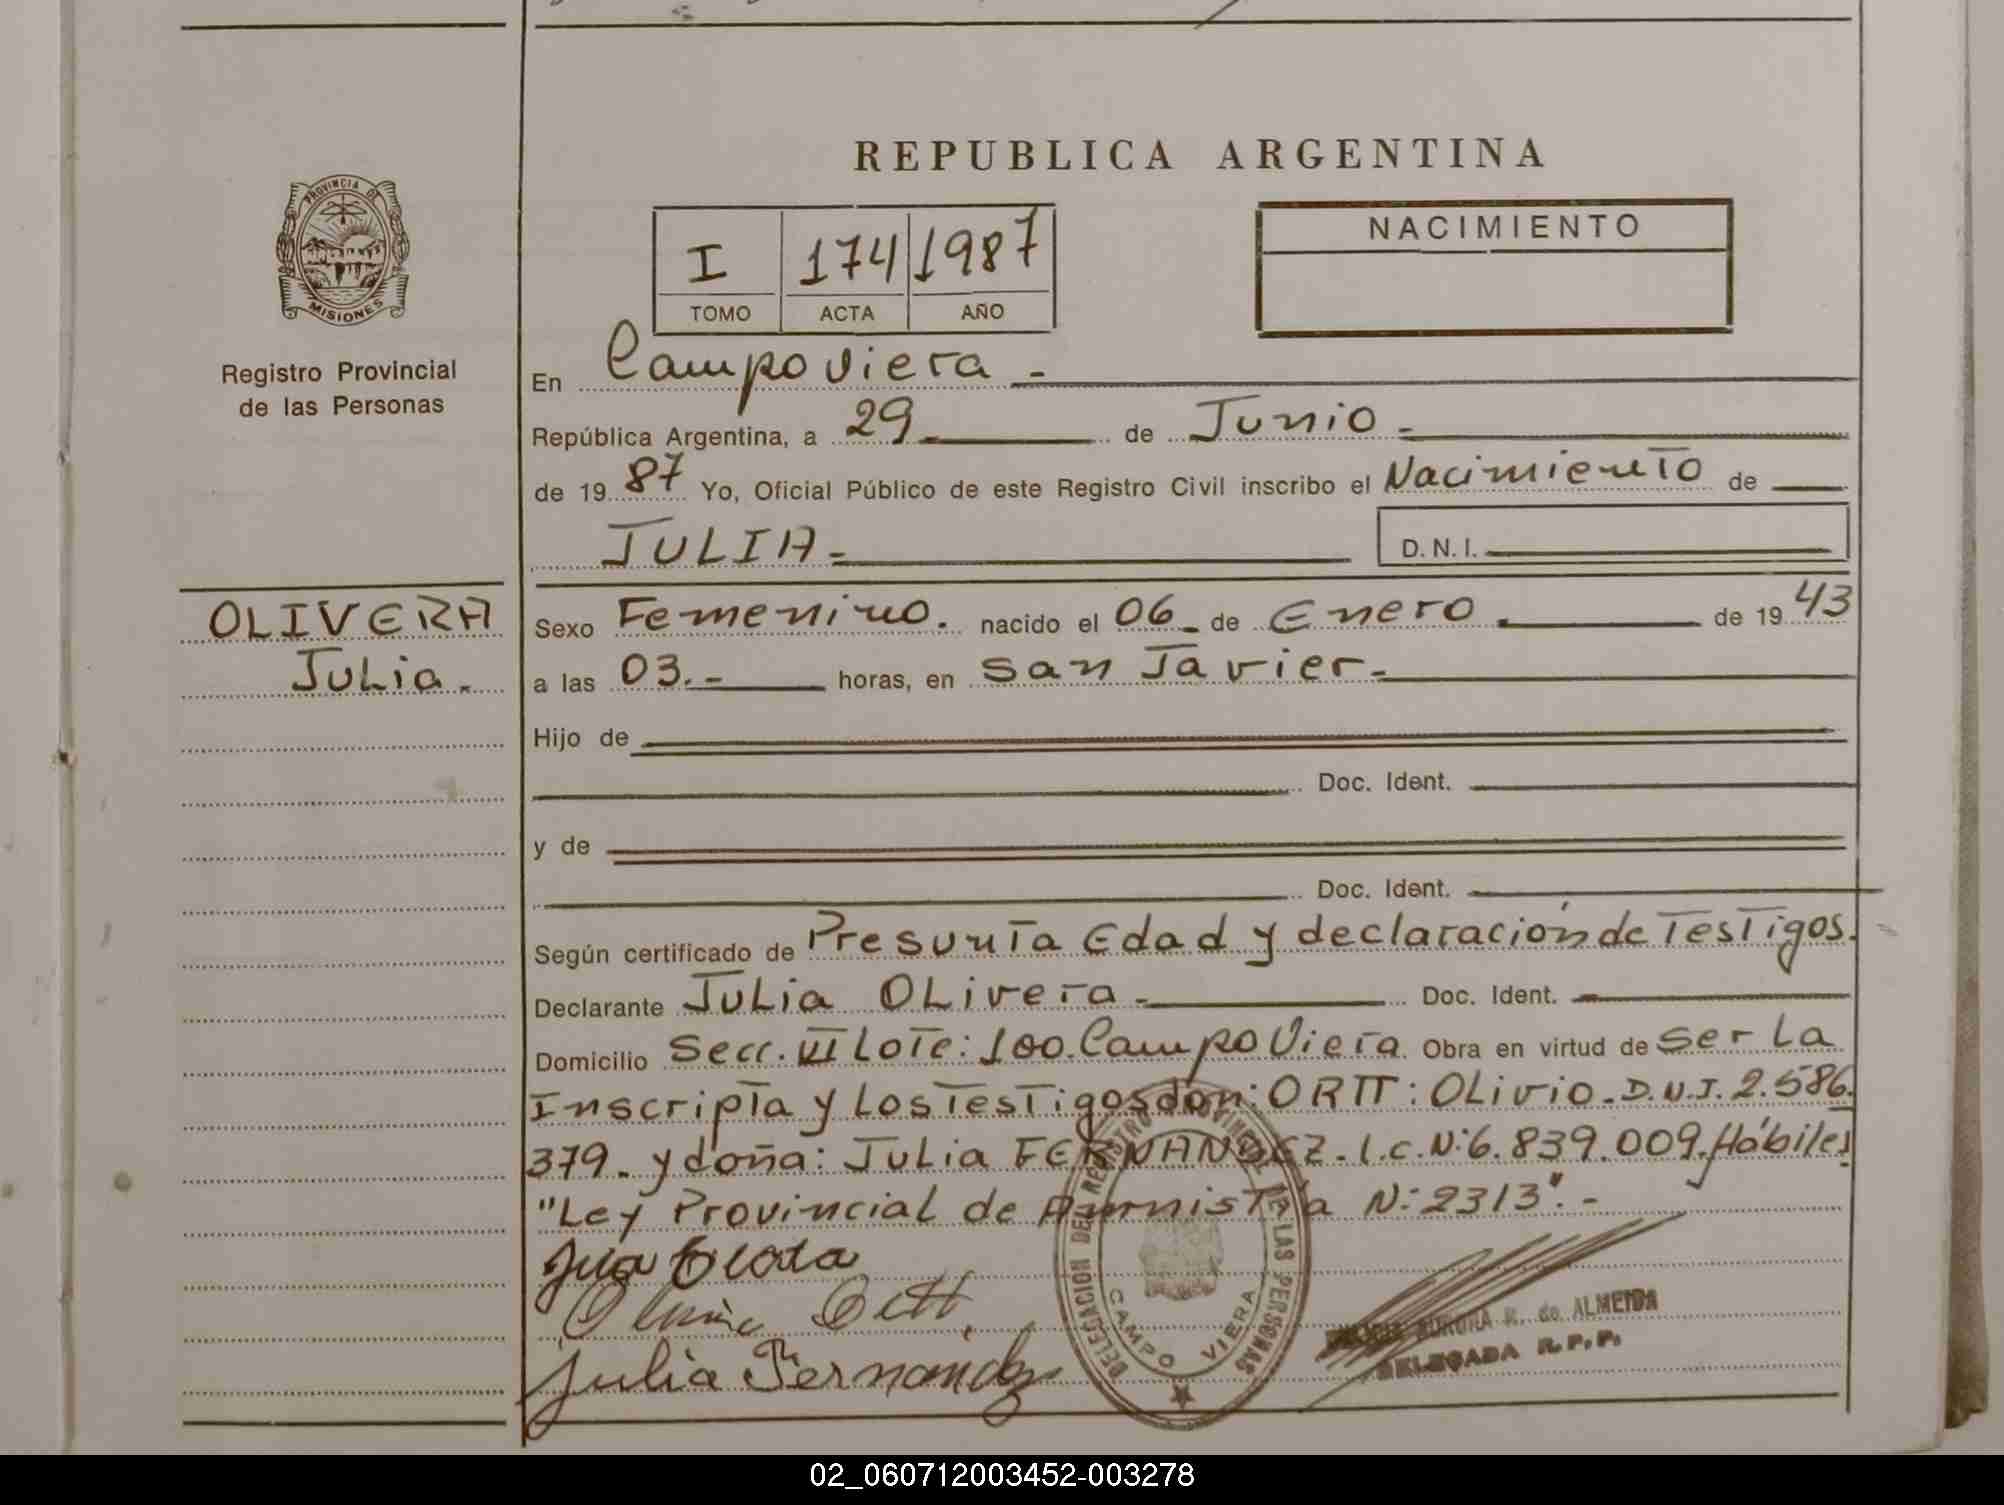 REPUBLICA ARGENTINA
PROVINCIA DE MISIONES
Registro Provincial
de las Personas
I 174 1987
TOMO ACTA AÑO
NACIMIENTO
En Campo Viera.-
República Argentina, a 29 de Junio.-
de 1987 Yo, Oficial Público de este Registro Civil inscribo el Nacimiento de
JULIA.- D.N.I.
OLIVERA
Julia.
Sexo Femenino. nacido el 06 de Enero de 1943
a las 03.- horas, en San Javier.-
Hijo de
Doc. Ident.
y de
Doc. Ident.
Según certificado de Presunta Edad y declaración de Testigos.
Declarante Julia Olivera.- Doc. Ident.
Domicilio Secc. VI Lote: 100. Campo Viera. Obra en virtud de ser La
Inscripta y Los Testigos don: ORTT: Olivio. D.N.I. 2.586.
379. y doña: Julia FERNANDEZ. l.c. N: 6.839.009. Hábiles
"Ley Provincial de Amnistía N: 2313".-
Julia Fernandez
DELEGACION DEL REGISTRO PROVINCIAL DE LAS PERSONAS
CAMPO VIERA
AURORA R. de ALMEIDA
DELEGADA R.P.P.
02_060712003452-003278